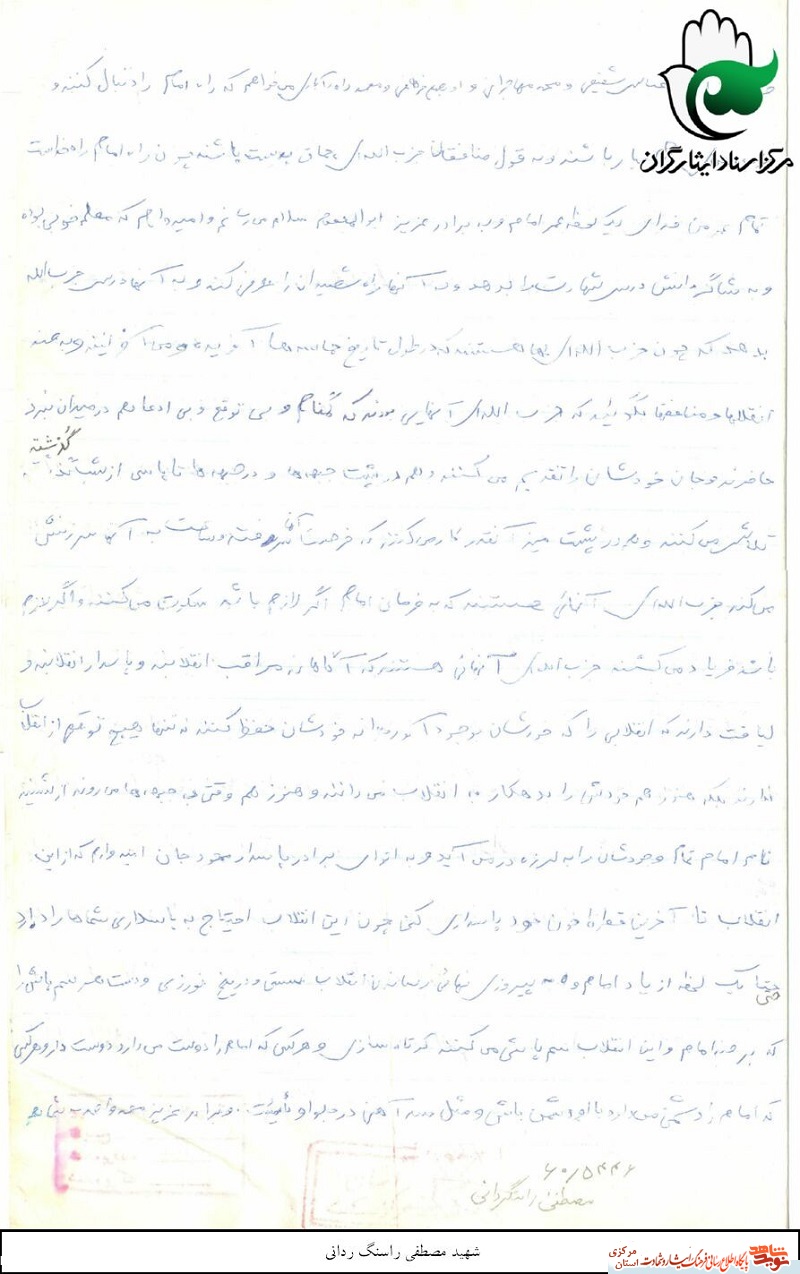 عباس شفیعی و محمد مهاجرانی و می‌خواهم که راه امام را دنبال کنند و
باشند و به قول منافقان حزب اللهی چماق بدست باشند چون راه امام راه خداست
تمام عمر من فدای یک لحظه عمر امام و به برادر عزیز ابوالفضل سلام می رسانم و امیدوارم که معلم خوبی بوده
و به شاگردانش درس شهادت را بدهد و به آنها راه شهیدان را معرفی کند و به آنها درس حزب الله
بدهد که چون حزب اللهی ها هستند که در طول تاریخ حماسه ها آفریده و می آفرینند و به ضد
انقلابها و منافقها بگوئید که حزب اللهی آنهایی بودند که گمنام و بی توقع و بی ادعا هم در میدان نبرد
حاضرند و جان خودشان را تقدیم می کنند و هم در پشت جبهه ها و در جبهه ها تا پاسی از شب گذشته
تلاش می کنند و هم در پشت میز آنقدر کار می کنند که فرصت آنها رفته و ساعت به آنها سرزنش
می کند حزب اللهی آنهائی هستند که به فرمان امام اگر لازم باشد سکوت می کنند و اگر لازم
باشد فریاد می کشند حزب اللهی آنهائی هستند که آگاهانه مراقب انقلابند و پاسدار انقلابند و
لیاقت دارند که انقلابی را که خودشان بوجود آورده اند خودشان حفظ کنند نه تنها هیچ توقعی از انقلاب
ندارند بلکه هنوز هم خودش را بدهکار به انقلاب می دانند و هنوز هم وقتی به جبهه ها می روند از شنیدن
نام امام تمام وجودشان را به لرزه در می آید و به تو ای برادر پاسدار محمود جان امیدوارم که از این
انقلاب تا آخرین قطره خون خود پاسداری کنی چون این انقلاب احتیاج به پاسداری شماها را دارد
حتی یک لحظه از یاد امام و به پیروزی نهائی رساندن انقلاب سستی و دریغ نورزی و دست هر سم پاشی را
که بر ضد امام و این انقلاب سم پاشی می کنند کوتاه سازی و هر کسی که امام را دوست می دارد دوست دار و هر کسی
که امام را دشمن می دارد با او دشمن باش و مثل سد آهنی در جلو او بایست. و برادر عزیز
مصطفی راسنگ ردانی
مرکز اسناد ایثارگران
شهید مصطفی راسنگ ردانی
نوید شاهد
پایگاه اطلاع رسانی فرهنگ ایثار و شهادت استان مرکزی